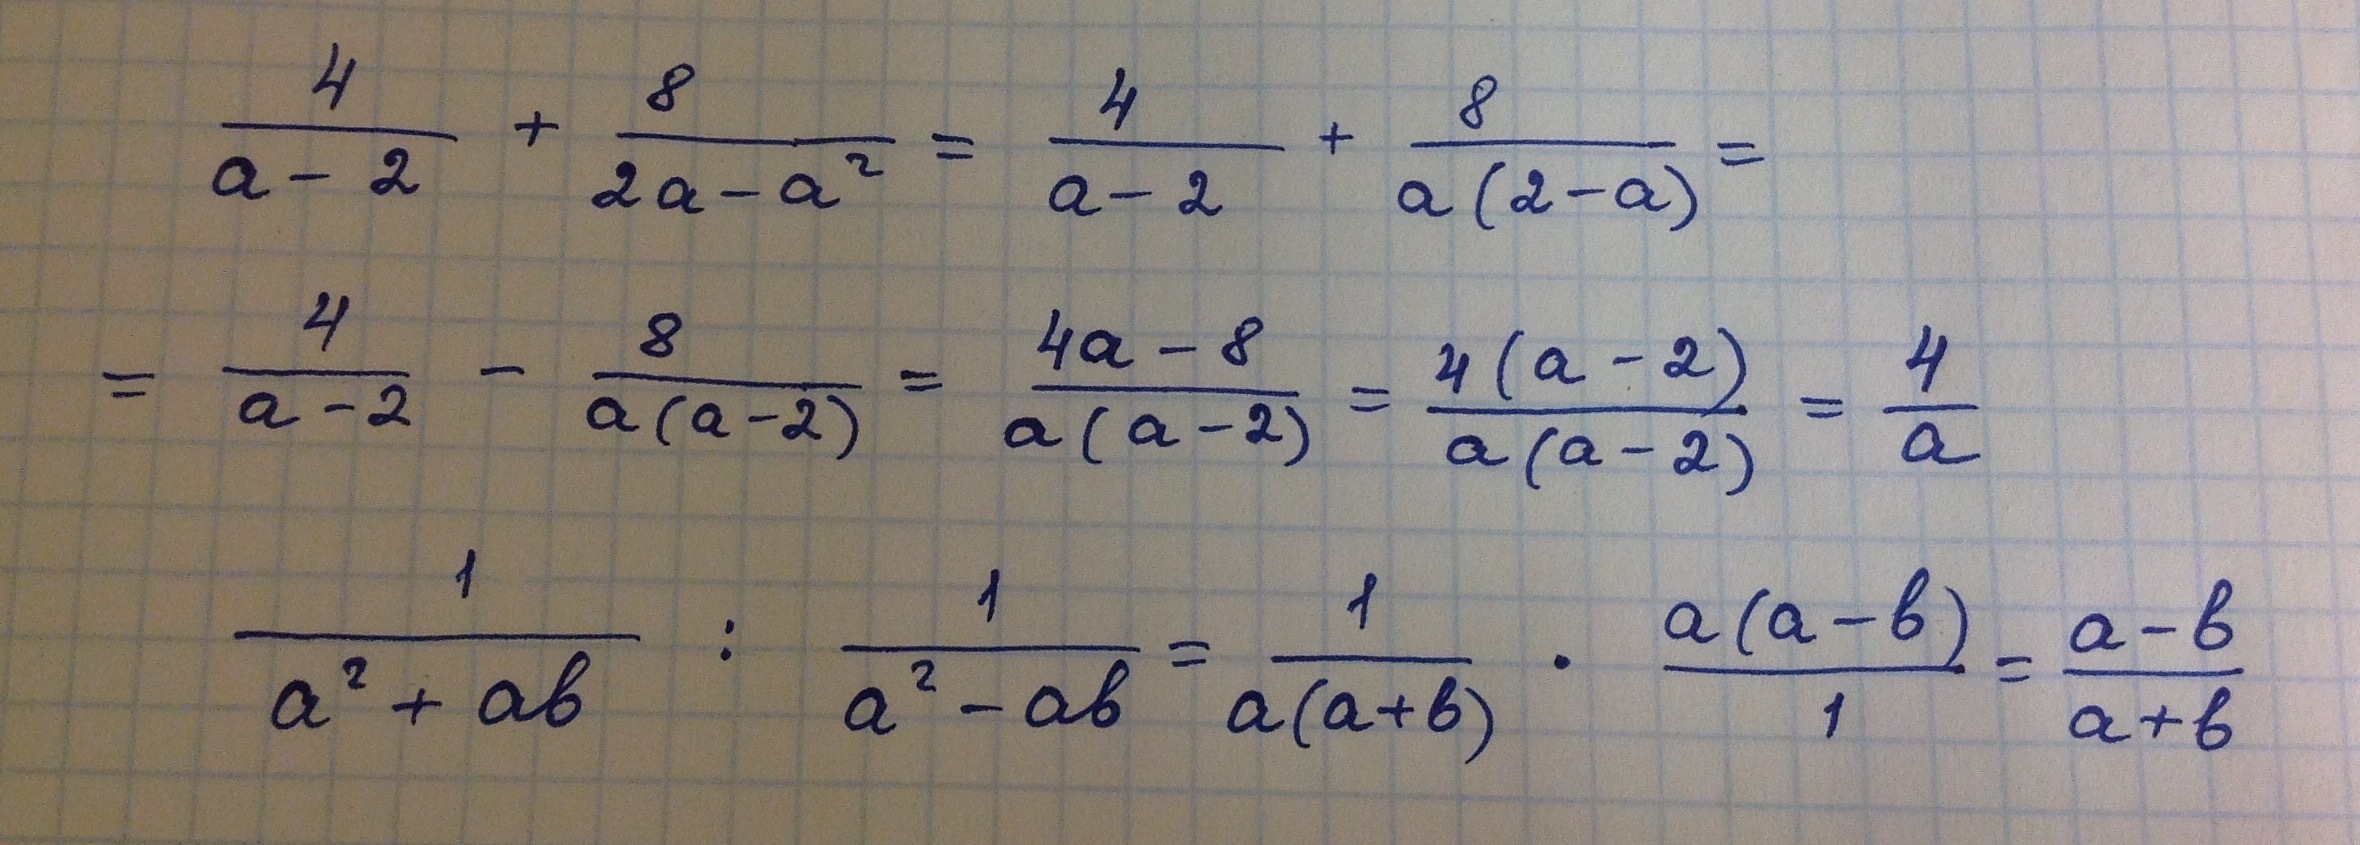 4/(a-2) + 8/(2a-a²) = 4/(a-2) + 8/(a(2-a)) =
= 4/(a-2) - 8/(a(a-2)) = (4a-8)/(a(a-2)) = 4(a-2)/(a(a-2)) = 4/a
1/(a²+ab) : 1/(a²-ab) = 1/(a(a+b)) · a(a-b)/1 = (a-b)/(a+b)